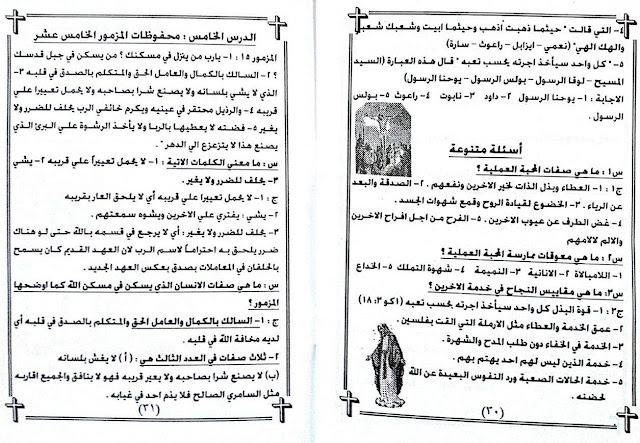 ٤- التي قالت " حيثما ذهبت أذهب وحيثما ابيت وشعبك شعبي
والهك الهي" (نعمي – ايزابل – راعوث – سارة)
٥- " كل واحد سيأخذ اجرته بحسب تعبه " قال هذه العبارة (السيد
المسيح – لوقا الرسول – بولس الرسول – يوحنا الرسول)
الاجابة : ١- يوحنا الرسول ٢- داود ٣- نابوت ٤- راعوث ٥- بولس
الرسول .
أسئلة متنوعة
س١ : ما هي صفات المحبة العملية ؟
ج١ : ١- العطاء وبذل الذات لخير الاخرين ونفعهم . ٢- الصدقة والبعد
عن الرياء . ٣- الخضوع لقيادة الروح وقمع شهوات الجسد .
٤- غض الطرف عن عيوب الاخرين . ٥- الفرح من اجل افراح الاخرين
والالم لالامهم
س٢ : ما هي معوقات ممارسة المحبة العملية ؟
١- اللامبالاة ٢- الانانية ٣- النميمة ٤- شهوة التملك ٥- الخداع
س٣: ما هي مقاييس النجاح في خدمة الاخرين ؟
ج٣ : ١- قوة البذل كل واحد سيأخذ اجرته بحسب تعبه (١كو ٣ : ١٨)
٢- عمق الخدمة والعطاء مثل الارملة التي القت بفلسين .
٣- الخدمة في الخفاء دون طلب المدح والشهرة .
٤- خدمة الذين ليس لهم احد يهتم بهم .
٥- خدمة الحالات الصعبة ورد النفوس البعيدة عن الله
لحضنه .
(٣٠)
الدرس الخامس : محفوظات المزمور الخامس عشر
المزمور ١٥ : ١- يارب من ينزل في مسكنك ؟ من يسكن في جبل قدسك
؟ ٢- السالك بالكمال والعامل الحق والمتكلم بالصدق في قلبه ٣-
الذي لا يشي بلسانه ولا يصنع شرا بصاحبه ولا يحمل تعييرا علي
قريبه ٤- والرذيل محتقر في عينيه ويكرم خائفي الرب يحلف للضرر ولا
يغير ٥- فضته لا يعطيها بالربا ولا يأخذ الرشوة علي البرئ الذي
يصنع هذا لا يتزعزع الي الدهر" .
س : ما معني الكلمات الاتية : ١- لا يحمل تعييراً علي قريبه ٢- يشي
٣- يحلف للضرر ولا يغير .
ج : ١- لا يحمل تعييرا علي قريبه أي لا يلحق العار بقريبه
٢- يشي : يفتري علي الاخرين ويشوه سمعتهم .
٣- يحلف للضرر ولا يغير : أي لا يرجع في قسمه بالله حتى لو هناك
ضرر يلحق به احتراماً لاسم الرب لان العهد القديم كان يسمح
بالحلفان في المعاملات بصدق بعكس العهد الجديد .
س : ما هي صفات الانسان الذي يسكن في مسكن الله كما اوضحها
المزمور ؟
ج : ١- السالك بالكمال والعامل الحق والمتكلم بالصدق في قلبه أي
لديه مخافة الله في قلبه .
٢- ثلاث صفات في العدد الثالث هي : (أ) لا يغش بلسانه
(ب) لا يصنع شرا بصاحبه ولا يعير قريبه فهو لا ينافق والجميع اقاربه
مثل السامري الصالح فلا يذم احد في غيابه .
(٣١)